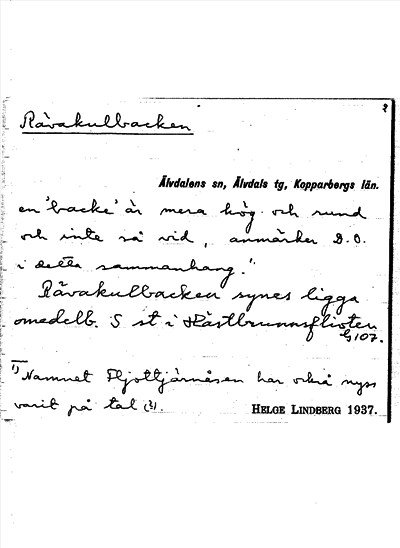 2
Rävakulbacken
Älvdalens sn, Älvdals tg, Kopparbergs län.
en 'backe' är mera hög och rund
och inte så vid, anmärker D.O.
i detta sammanhang."
Rävakulbacken synes ligga
omedelb. S st i Hästbrunnsflioten
G 107.
1) Namnet Fljottjärnåsen har också nyss
varit på tal
HELGE LINDBERG 1937.